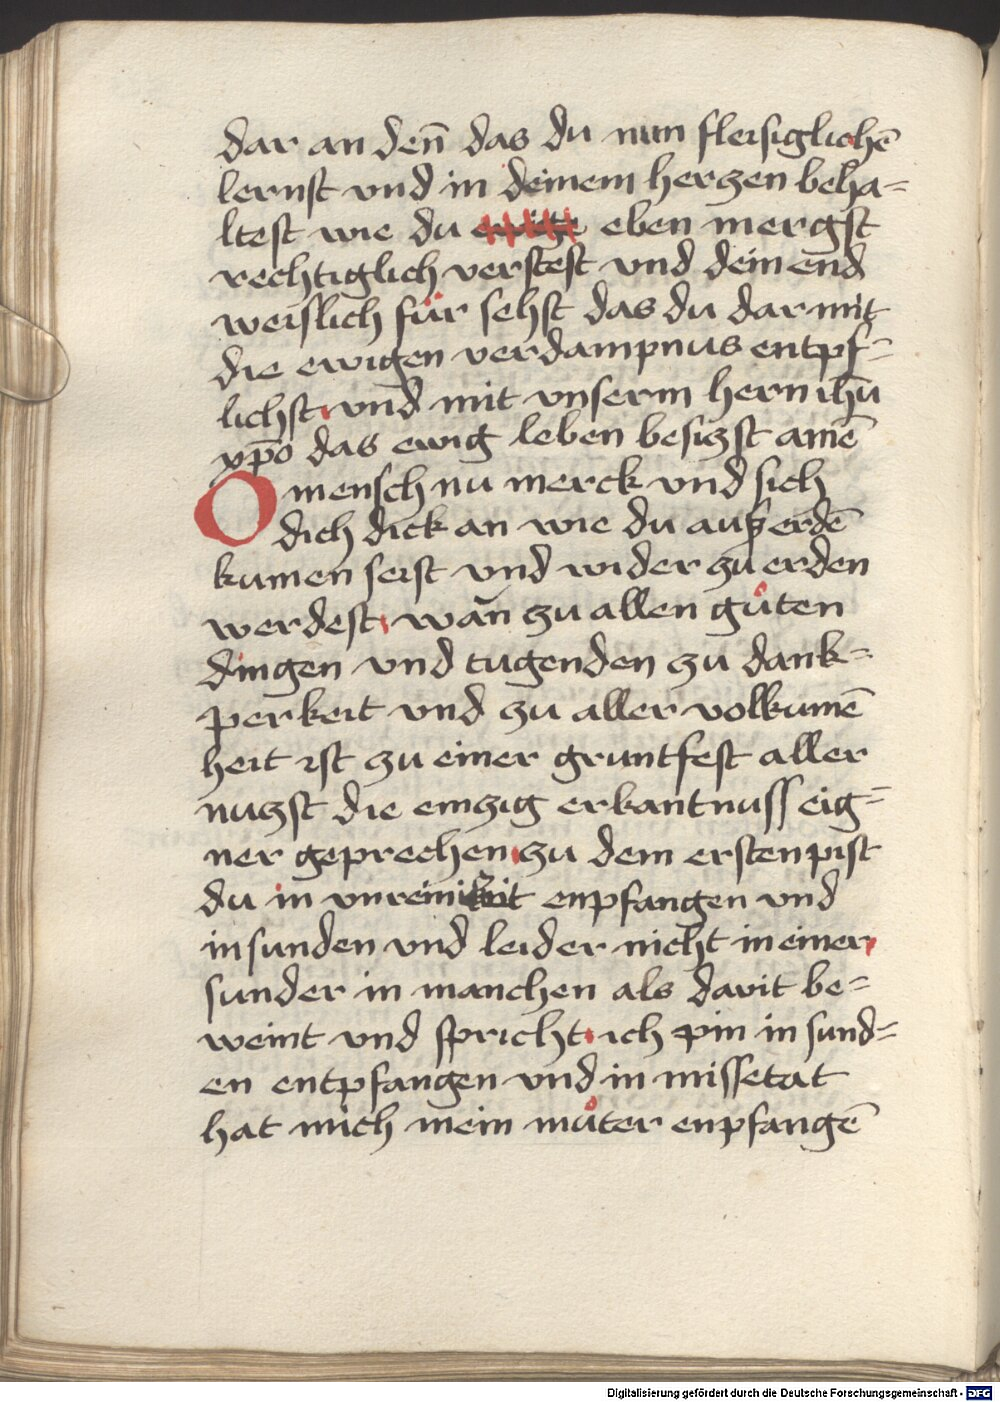 dar an den̄ das du nun fleisiglichē
lernst vnd in deinem herzen beha=
ltest wie du eben mergst
rechtiglich verstest vnd dein end
weislich fůr sehst das du dar mit
die ewigen verdampnus entpf=
lichst vnd mit vnserm hern ihū
xp̄o das ewig leben besizst amē
O mensch nu merck vnd sich
dich dick an wie du auß erdē
kumen seist vnd wider zu erden
werdest wan̄ zu allen gůten
dingen vnd tugenden zu dank=
perkeit vnd zu aller volkumē
heit ist zu einer gruntfest aller
nuzst die einzig erkantnuss eig=
ner geprechen zu dem ersten pist
du in vnreinikeit enpfangen vnd
in sunden vnd leider nicht in einer
sunder in manchen als dauit be=
weint vnd spricht ich pin in sund=
en entpfangen vnd in missetat
hat mich mein můter enpfangē
Digitalisierung gefördert durch die Deutsche Forschungsgemeinschaft - DFG